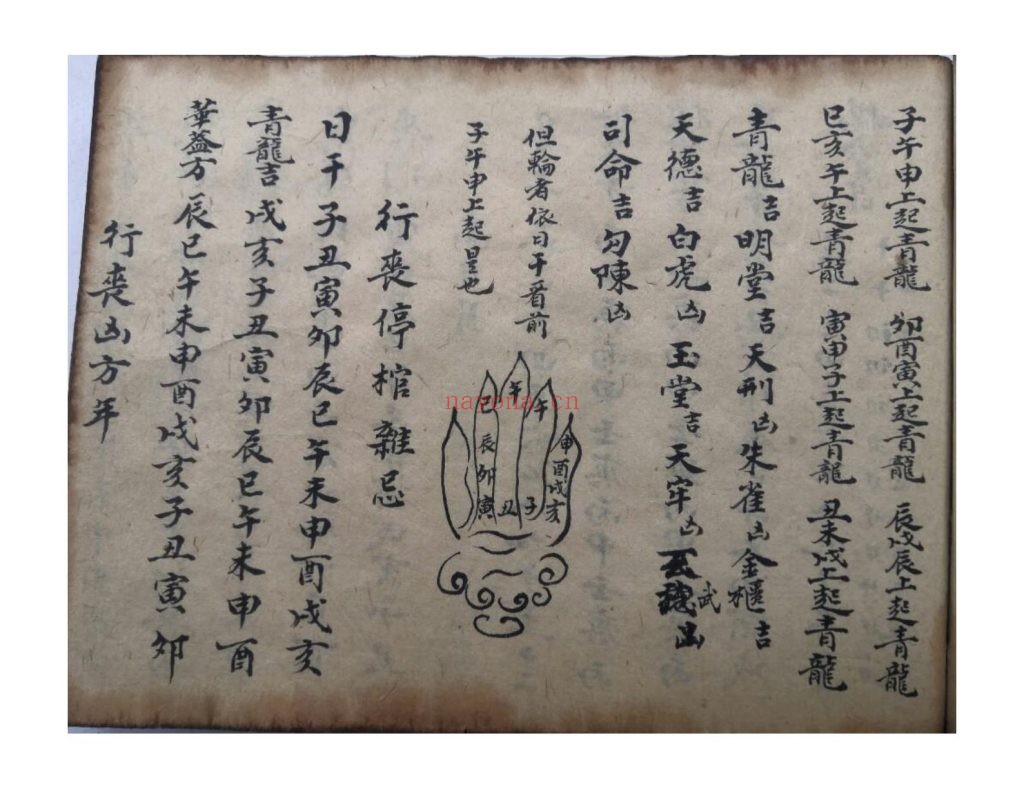 子午申上起青龍 卯酉寅上起青龍 辰戌辰上起青龍
巳亥午上起青龍 寅申子上起青龍 丑未戌上起青龍
青龍吉明堂吉天刑凶朱雀凶金櫃吉
天德吉白虎凶玉堂吉天牢凶玄武凶
司命吉勾陳凶
但輪者依日干看前
子午申上起是也
巳 午 午 申
辰 酉
卯 戌
寅 丑 子 亥
行喪停棺雜忌
日干子丑寅卯辰巳午未申酉戌亥
青龍吉戌亥子丑寅卯辰巳午未申酉
華蓋方辰巳午未申酉戌亥子丑寅卯
行喪凶方年
nayona.cn